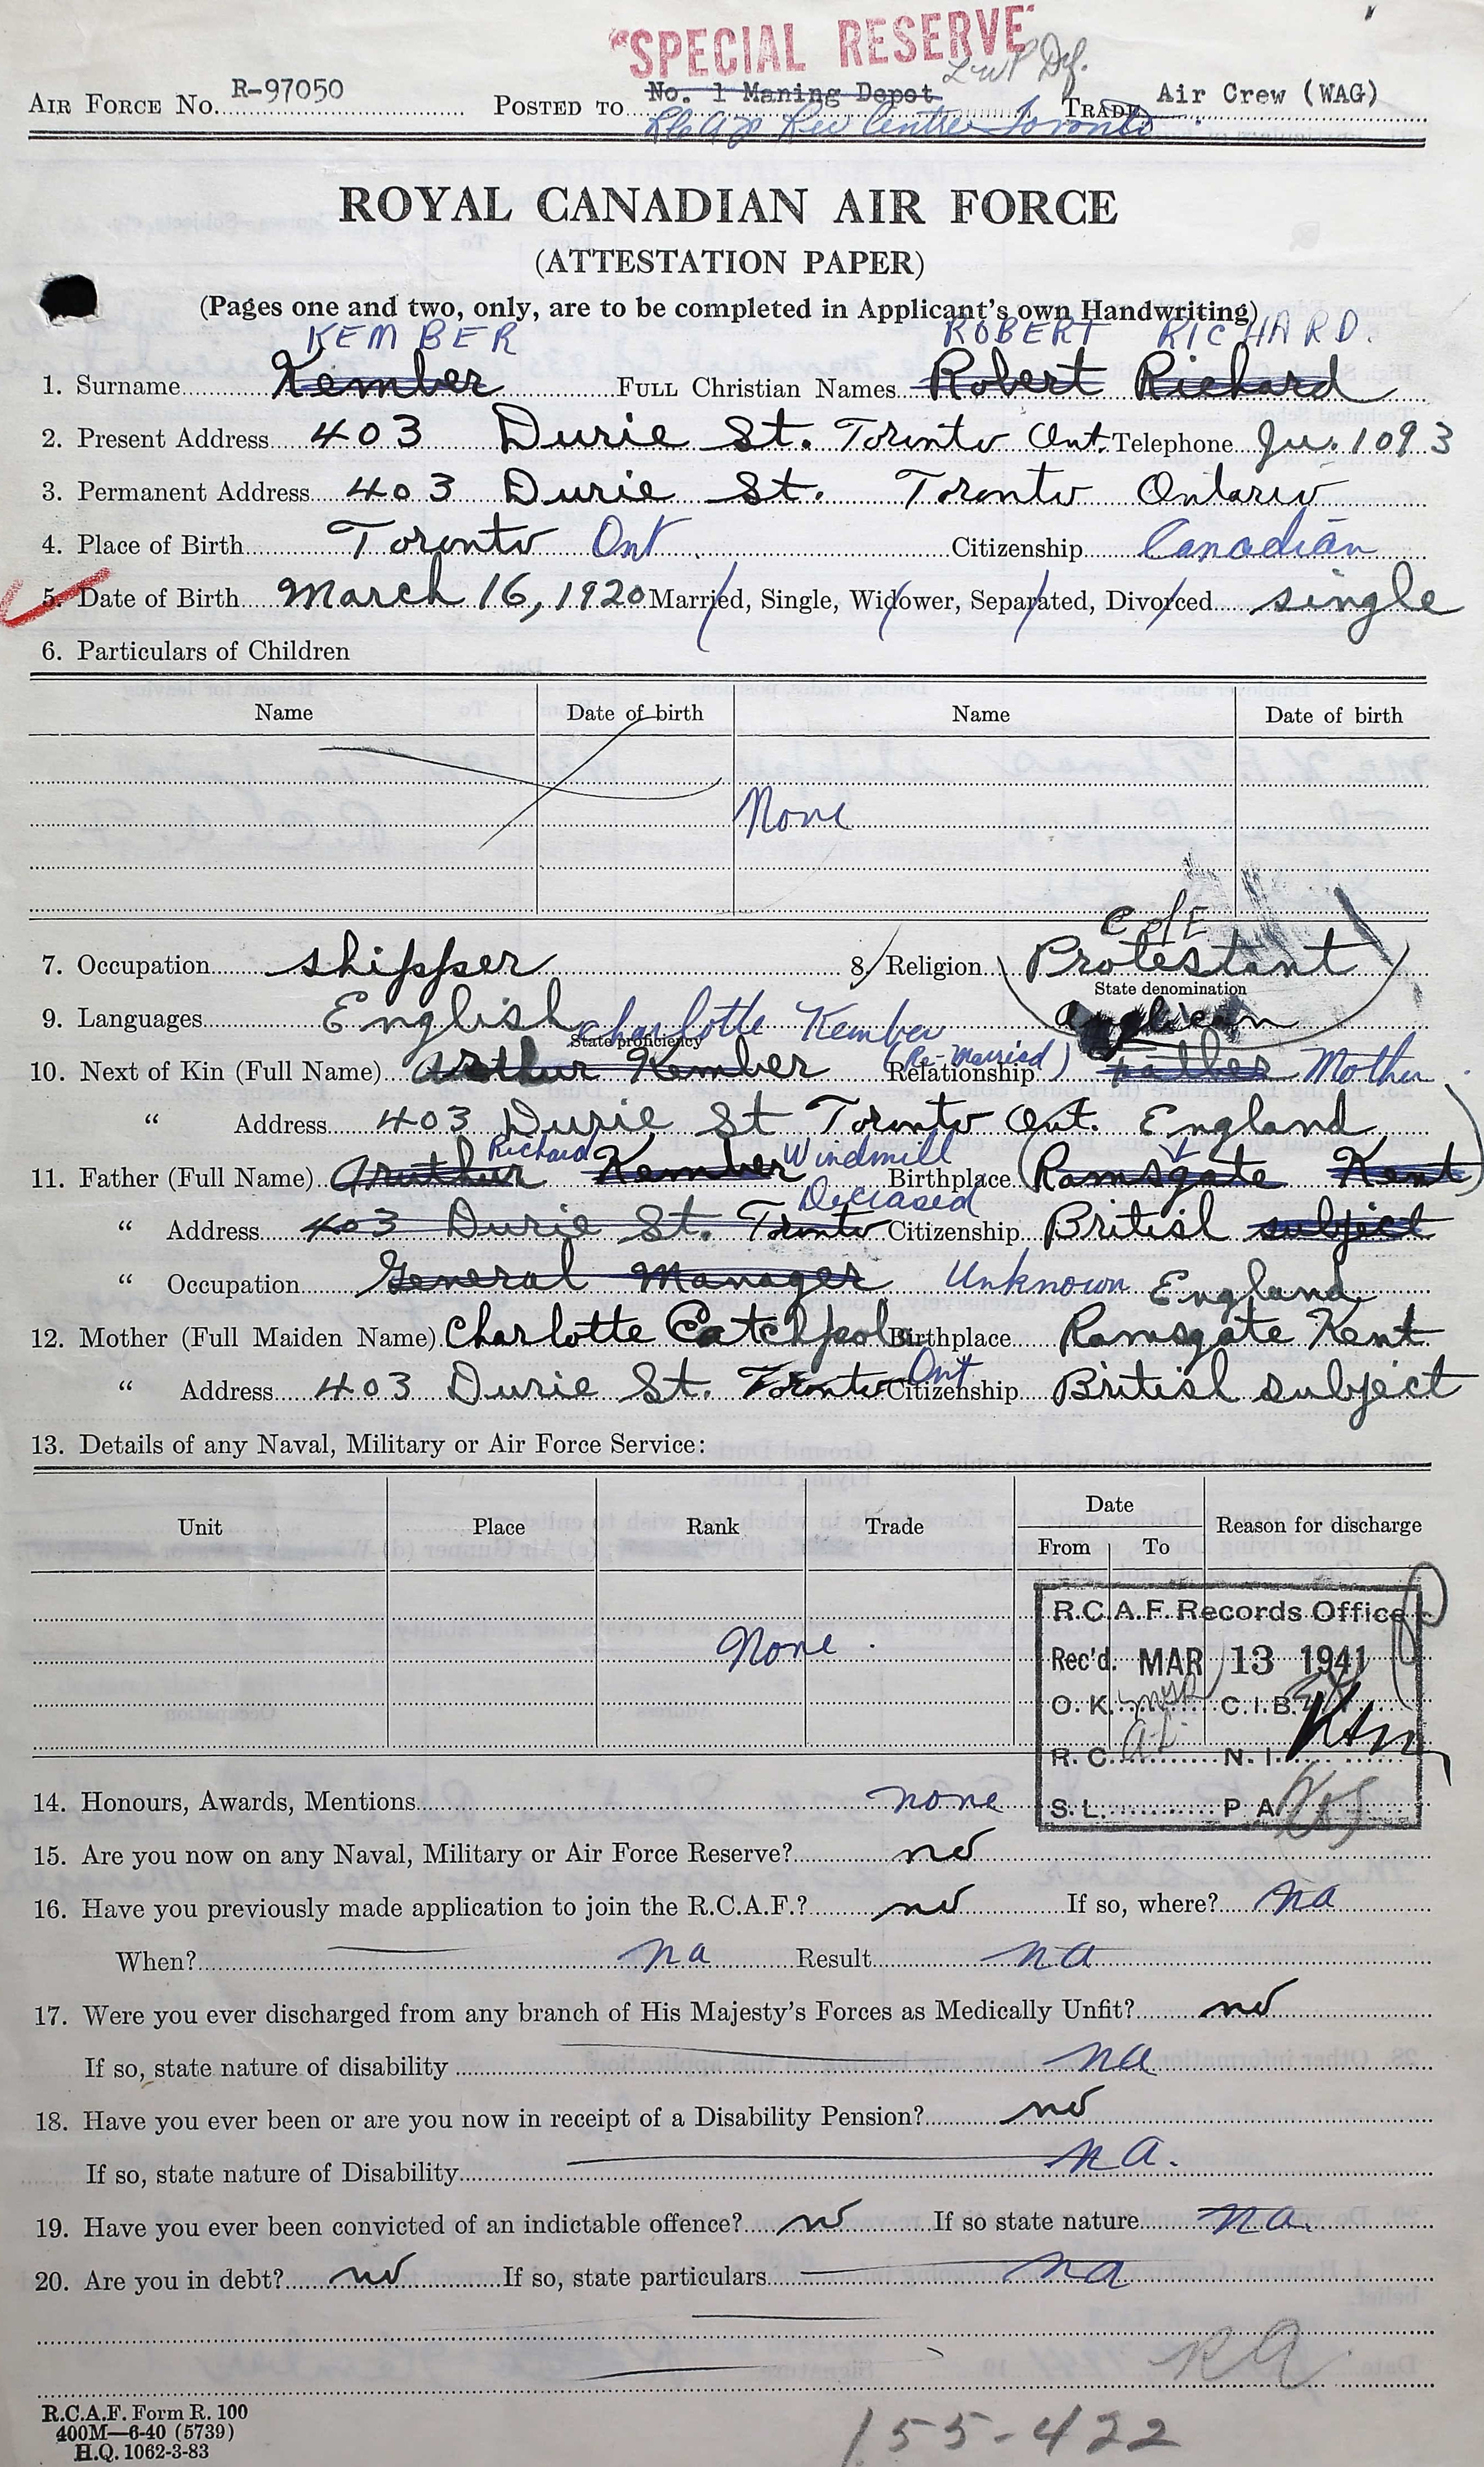 "SPECIAL RESERVE"
AIR FORCE NO. R-97050 POSTED TO No. 1 Maning Depot TRADE Air Crew (WAG)
Centre Toronto
ROYAL CANADIAN AIR FORCE
(ATTESTATION PAPER)
(Pages one and two, only, are to be completed in Applicant's own Handwriting)
KEMBER ROBERT RICHARD.
1. Surname Kember FULL Christian Names Robert Richard
2. Present Address 403 Durie St. Toronto Ont. Telephone Ju. 1093
3. Permanent Address 403 Durie St. Toronto Ontario
4. Place of Birth Toronto Ont Citizenship Canadian
5. Date of Birth March 16, 1920 Married, Single, Widower, Separated, Divorced single
6. Particulars of Children
Name Date of birth Name Date of birth
None
C of E
7. Occupation shipper 8. Religion Protestant
State denomination
9. Languages English Anglican
State proficiency
Charlotte Kember (Re-Married)
10. Next of Kin (Full Name) Arthur Kember Relationship Father Mother
" Address 403 Durie St Toronto Ont. England
Richard Windmill
11. Father (Full Name) Aruthur Kember Birthplace (Ramsgate Kent)
Deceased
" Address 403 Durie St. Tronto Citizenship British subject
" Occupation General Manager Unknown England
12. Mother (Full Maiden Name) Charlotte Catchpole Birthplace Ramsgate Kent
" Address 403 Durie St. Toronto Ont Citizenship British subject
13. Details of any Naval, Military or Air Force Service:
Unit Place Rank Trade Date Reason for discharge
From To
R.C.A.F. Records Office
None
Rec'd. MAR 13 1941
O.K. C.I.B.
R.C. N.I.
S.L. P.A.
14. Honours, Awards, Mentions none
15. Are you now on any Naval, Military or Air Force Reserve? no
16. Have you previously made application to join the R.C.A.F.? no If so, where? na
When? na Result na
17. Were you ever discharged from any branch of His Majesty's Forces as Medically Unfit? no
If so, state nature of disability na
18. Have you ever been or are you now in receipt of a Disability Pension? no
If so, state nature of Disability na.
19. Have you ever been convicted of an indictable offence? no If so state nature na.
20. Are you in debt? no If so, state particulars na
RA
R.C.A.F. Form R. 100
400M—6-40 (5739)
H.Q. 1062-3-83
155-422